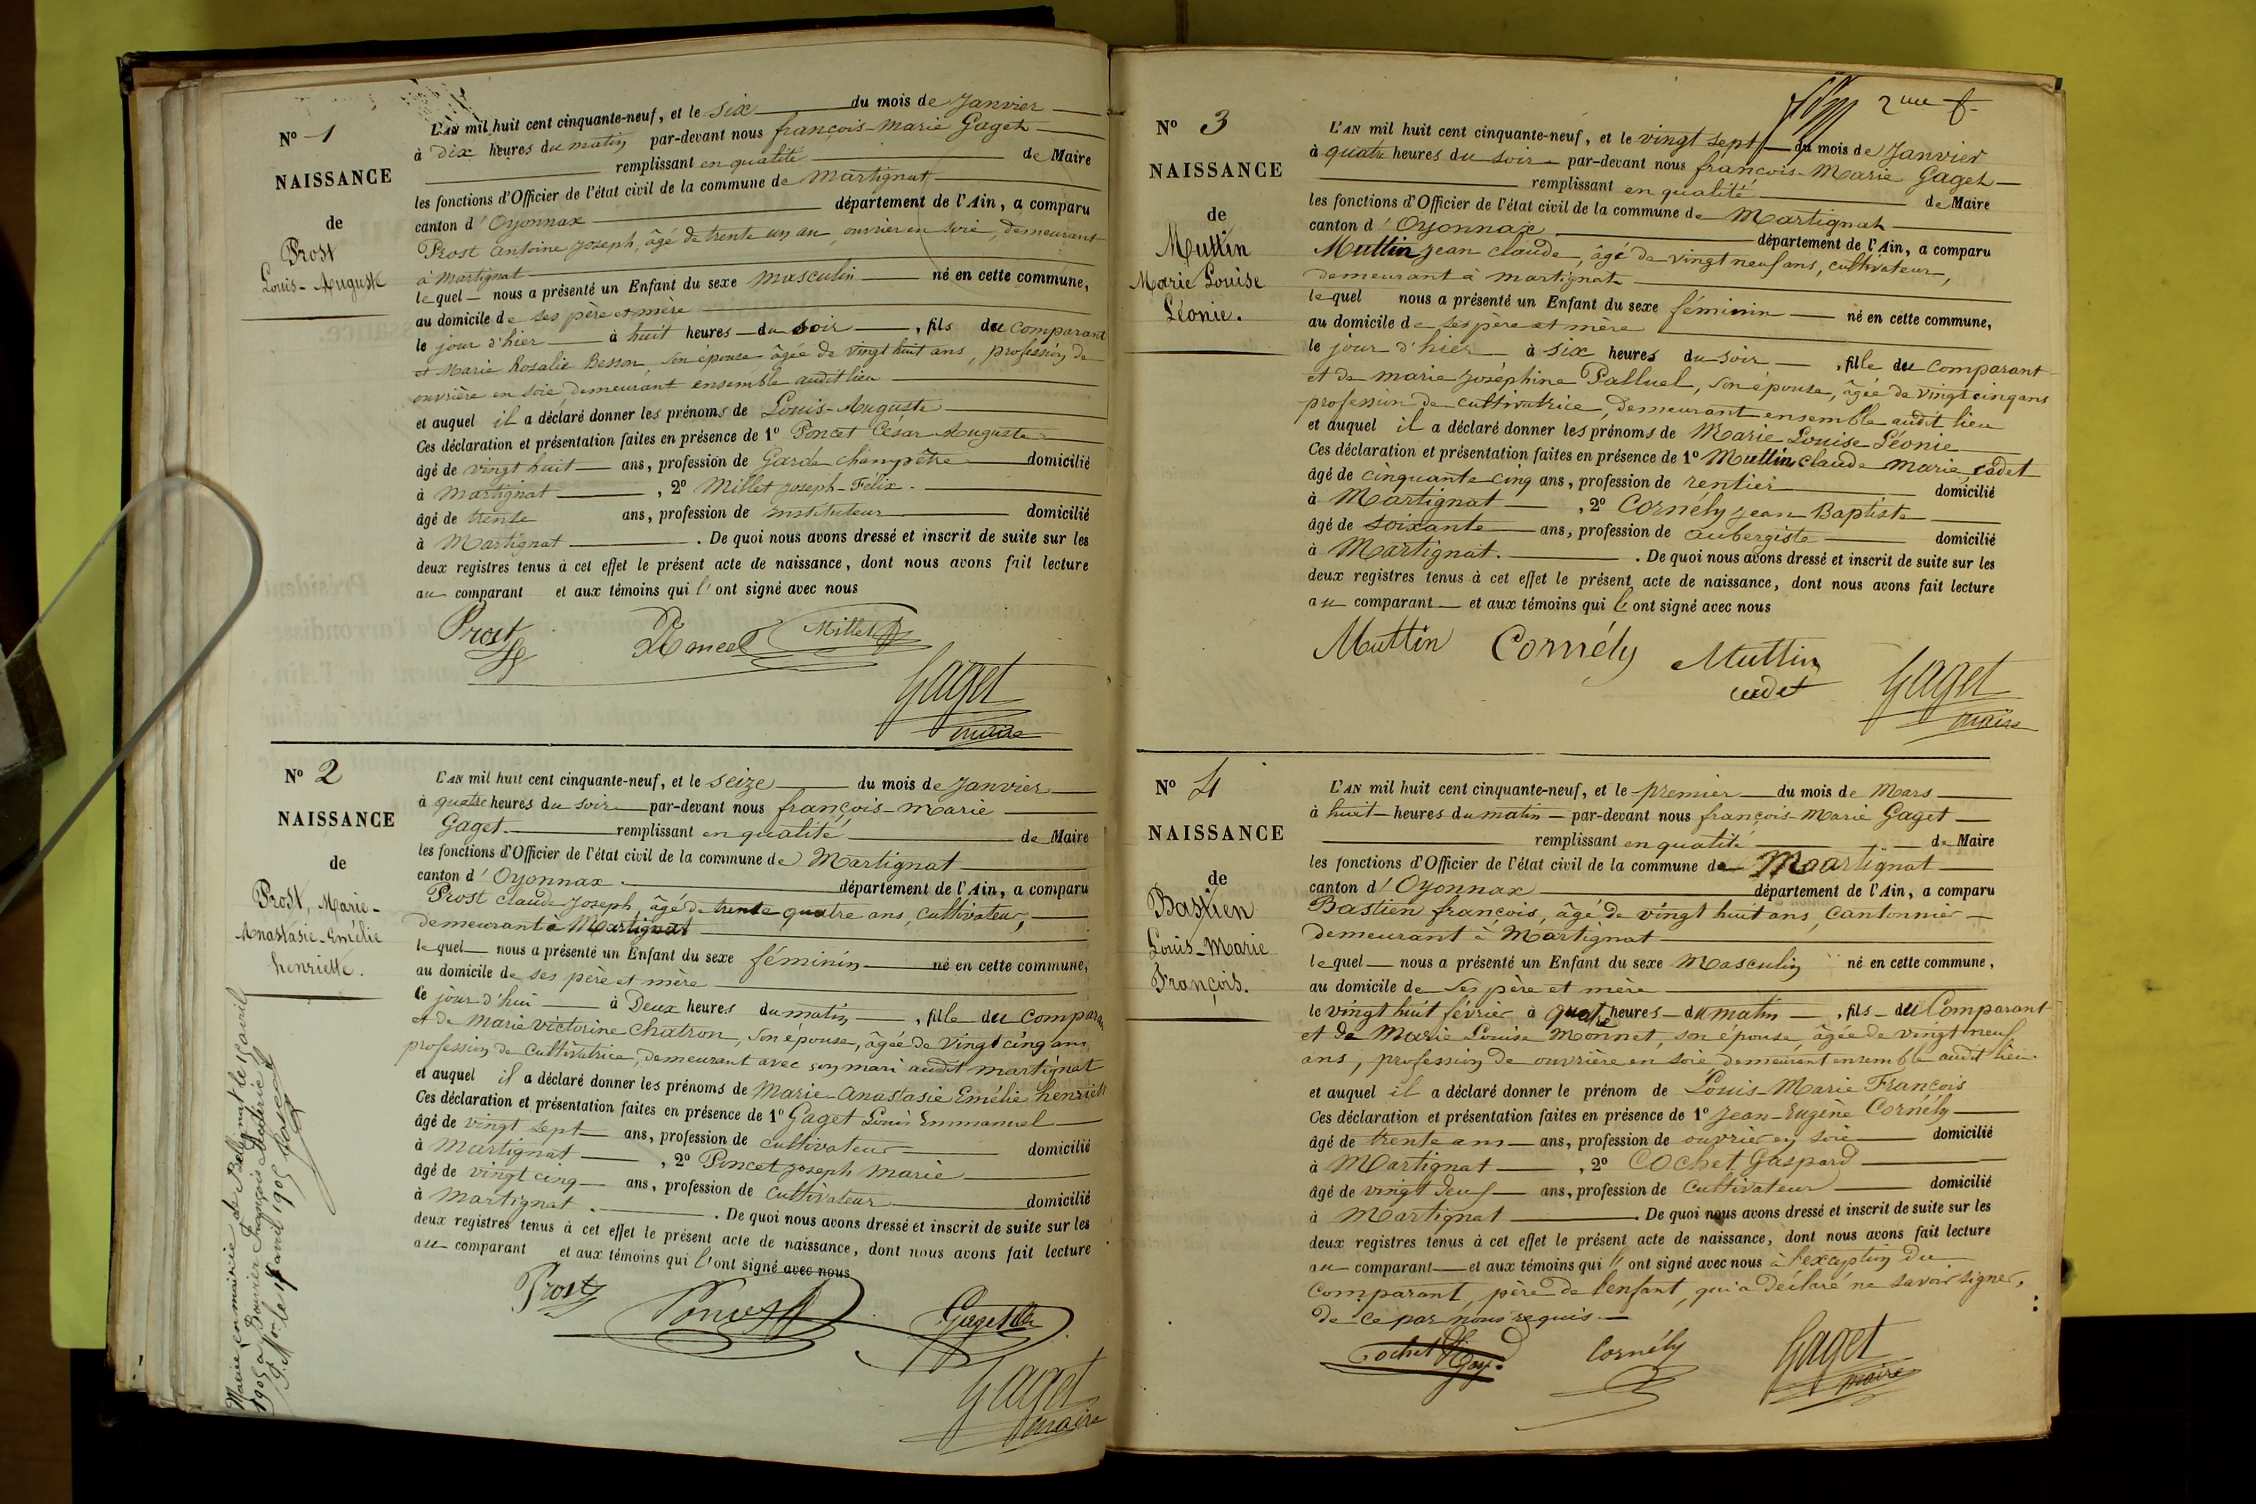 N° 1
NAISSANCE
de
Prost
Louis-Auguste
L'AN mil huit cent cinquante-neuf, et le six du mois de Janvier
à Dix heures du matin par-devant nous françois-marie Gaget
remplissant en qualité de Maire
les fonctions d'Officier de l'état civil de la commune de Martignat
canton d'Oyonnax département de l'Ain, a comparu
Prost Antoine Joseph, âgé de trente un an, ouvrier en soie, demeurant
à Martignat
lequel nous a présenté un Enfant du sexe masculin né en cette commune,
au domicile de ses père et mère
le jour d'hier à huit heures du soir, fils du comparant
et Marie Rosalie Besson, son épouse âgée de vingt huit ans, profession de
ouvrière en soie, demeurant ensemble audit lieu
et auquel il a déclaré donner les prénoms de Louis-Auguste
Ces déclaration et présentation faites en présence de 1° Poncet César Auguste
âgé de vingt huit ans, profession de Garde champêtre domicilié
à Martignat, 2° Millet Joseph-Felix.
âgé de trente ans, profession de instituteur domicilié
à Martignat. De quoi nous avons dressé et inscrit de suite sur les
deux registres tenus à cet effet le présent acte de naissance, dont nous avons fait lecture
au comparant et aux témoins qui l'ont signé avec nous
Prost Poncet Millet
Gaget
maire
N° 2
NAISSANCE
de
Prost, Marie-
Anastasie-Emélie
henriette.
L'AN mil huit cent cinquante-neuf, et le seize du mois de Janvier
à quatre heures du soir par-devant nous françois-marie
Gaget remplissant en qualité de Maire
les fonctions d'Officier de l'état civil de la commune de Martignat
canton d'Oyonnax département de l'Ain, a comparu
Prost claude Joseph, âgé de trente quatre ans, cultivateur,
demeurant à Martignat
lequel nous a présenté un Enfant du sexe féminin né en cette commune,
au domicile de ses père et mère
le jour d'hui à Deux heures du matin, fille du comparant
et de Marie victorine Chatron, son épouse, âgée de vingt cinq ans
profession de cultivatrice, demeurant avec son mari audit martignat
et auquel il a déclaré donner les prénoms de Marie-Anastasie Emélie henriette
Ces déclaration et présentation faites en présence de 1° Gaget Louis Emmanuel
âgé de vingt sept ans, profession de cultivateur domicilié
à Martignat, 2° Poncet Joseph Marie
âgé de vingt cinq ans, profession de cultivateur domicilié
à Martignat. De quoi nous avons dressé et inscrit de suite sur les
deux registres tenus à cet effet le présent acte de naissance, dont nous avons fait lecture
au comparant et aux témoins qui l'ont signé avec nous
Prost Poncet Gaget
Gaget
maire
Mariée en mairie de Bellignat le
1905 à Bouvier François
le avril 1905
2me f.
N° 3
NAISSANCE
de
Muttin
Marie Louise
Léonie.
L'AN mil huit cent cinquante-neuf, et le vingt sept du mois de Janvier
à quatre heures du soir par-devant nous françois-Marie Gaget
remplissant en qualité de Maire
les fonctions d'Officier de l'état civil de la commune de Martignat
canton d'Oyonnax département de l'Ain, a comparu
Muttin jean claude, âgé de vingt neuf ans, cultivateur,
demeurant à martignat
lequel nous a présenté un Enfant du sexe féminin né en cette commune,
au domicile de ses père et mère
le jour d'hier à six heures du soir, fille du comparant
et de marie joséphine Palluel, son épouse, âgée de vingt cinq ans
profession de cultivatrice, demeurant ensemble audit lieu
et auquel il a déclaré donner les prénoms de Marie Louise Léonie
Ces déclaration et présentation faites en présence de 1° Muttin claude marie cadet
âgé de cinquante cinq ans, profession de rentier domicilié
à Martignat, 2° Cornély jean Baptiste
âgé de soixante ans, profession de aubergiste domicilié
à Martignat. De quoi nous avons dressé et inscrit de suite sur les
deux registres tenus à cet effet le présent acte de naissance, dont nous avons fait lecture
au comparant et aux témoins qui l'ont signé avec nous
Muttin Cornély Muttin
cadet
Gaget
maire
N° 4
NAISSANCE
de
Bastien
Louis-Marie
François.
L'AN mil huit cent cinquante-neuf, et le premier du mois de Mars
à huit heures du matin par-devant nous françois-Marie Gaget
remplissant en qualité de Maire
les fonctions d'Officier de l'état civil de la commune de Martignat
canton d'Oyonnax département de l'Ain, a comparu
Bastien françois, âgé de vingt huit ans, Cantonnier
demeurant à Martignat
lequel nous a présenté un Enfant du sexe Masculin né en cette commune,
au domicile de ses père et mère
le vingt huit février à quatre heures du matin, fils du Comparant
et de Marie Louise Monnet, son épouse, âgée de vingt neuf
ans, profession de ouvrière en soie demeurant ensemble audit lieu
et auquel il a déclaré donner le prénom de Louis-Marie François
Ces déclaration et présentation faites en présence de 1° Jean-Eugène Cornély
âgé de trente ans ans, profession de ouvrier en soie domicilié
à Martignat, 2° Cochet Gaspard
âgé de vingt neuf ans, profession de cultivateur domicilié
à Martignat. De quoi nous avons dressé et inscrit de suite sur les
deux registres tenus à cet effet le présent acte de naissance, dont nous avons fait lecture
au comparant et aux témoins qui l'ont signé avec nous à l'exception du
Comparant, père de l'enfant, qui a déclaré ne savoir signer,
de ce par nous requis.
Cochet Cornély Gaget
maire